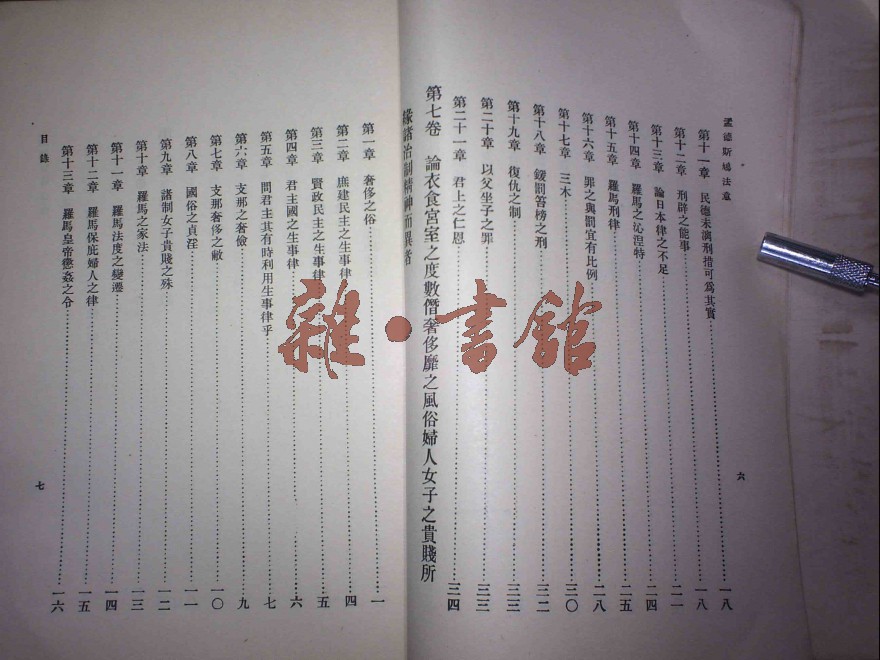 孟德斯鳩法意
第十一章 民德未漓刑措可爲其實 一八
第十二章 刑辟之能事 一八
第十三章 論日本律之不足 二一
第十四章 羅馬之沁涅特 二四
第十五章 羅馬刑律 二五
第十六章 罪之與罰宜有比例 二八
第十七章 三木 三〇
第十八章 鍰罰笞榜之刑 三二
第十九章 復仇之制 三三
第二十章 以父坐子之罪 三三
第二十一章 君上之仁恩 三四
第七卷 論衣食宮室之度數僭奢侈靡之風俗婦人女子之貴賤所
緣諸治制精神而異者
六
第一章 奢侈之俗 一
第二章 庶建民主之生事律 四
第三章 賢政民主之生事律 五
第四章 君主國之生事律 六
第五章 問君主其有時利用生事律乎 七
第六章 支那之奢儉 九
第七章 支那奢侈之敝 一〇
第八章 國俗之貞淫 一一
第九章 諸制女子貴賤之殊 一二
第十章 羅馬之家法 一三
第十一章 羅馬法度之變遷 一四
第十二章 羅馬保庇婦人之律 一五
第十三章 羅馬皇帝懲姦之令 一六
目錄
七
雜·書館